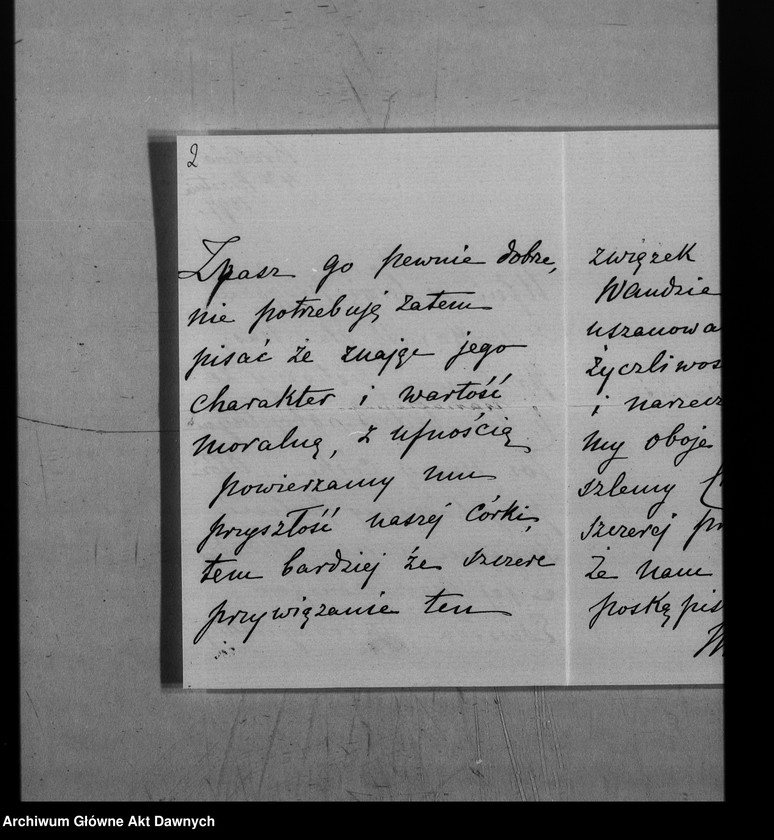 2
Znasz go pewnie dobrze,
nie potrzebuję zatem
pisać że znając jego
charakter i wartość
moralną, z ufnością
powierzamy mu
przyszłość naszej córki,
tem bardziej że szczere
przywiązanie ten
związek
Wandzie
uszanowa
życzliwoś
i narzecz
my oboje
szlemy
szczerej pr
że nam
poskąpis
Archiwum Główne Akt Dawnych